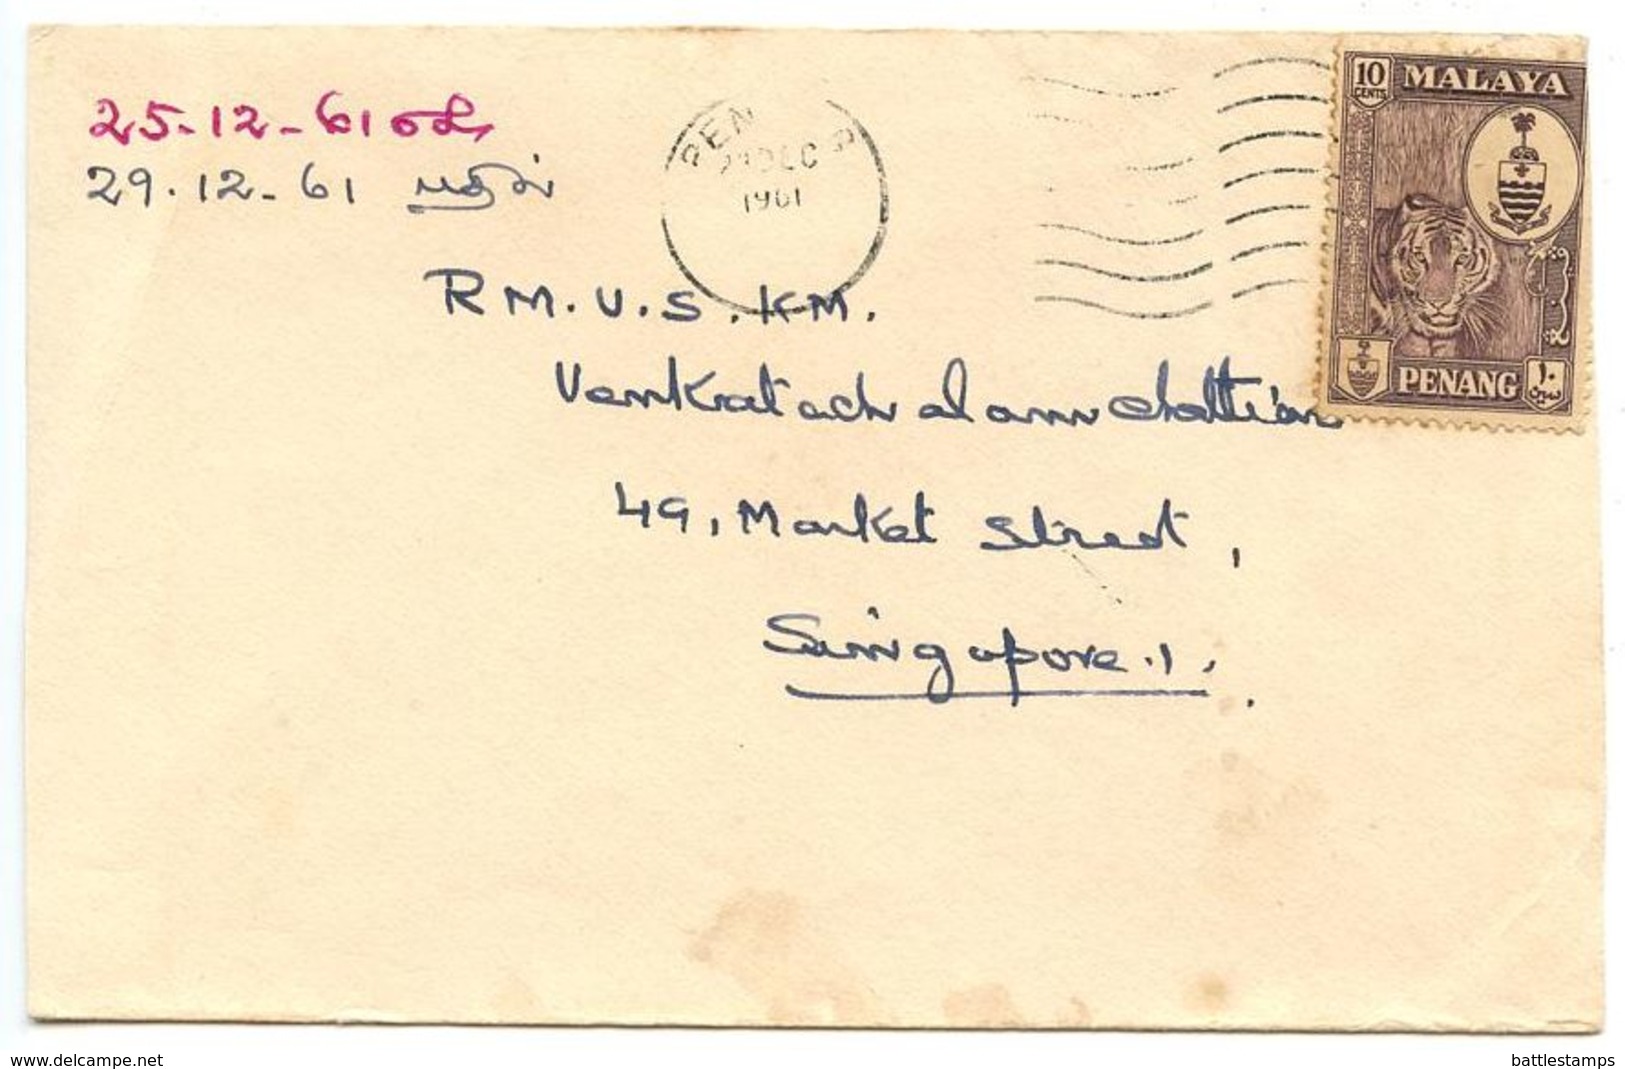 25-12-61
29.12-61 பதில்
PEN
DEC
1961
10 CENTS
MALAYA
PENANG
١٠
سين
R M. V. S. K-M.
Venkatachalam chettiar
49, Market street,
Singapore.1.
delcampe.net
battlestamps